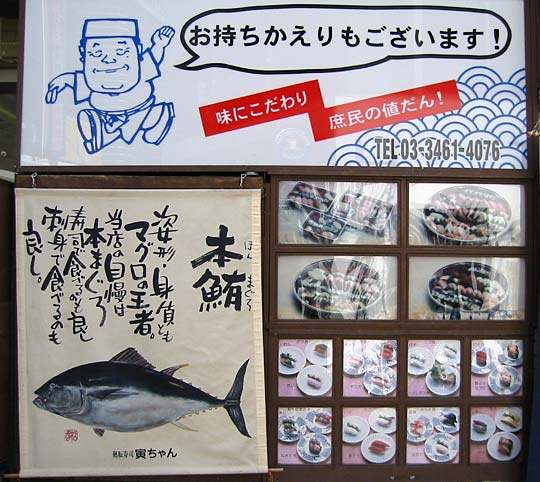 お持ちかえりもございます!
味にこだわり
庶民の値だん!
TEL03-3461-4076
本鮪
ほん まぐろ
姿形、身値とも
マグロの王者。
当店の自慢は
本まぐろ
寿司で食べるも良し
刺身で食べるのも
良し。
廻転寿司 寅ちゃん